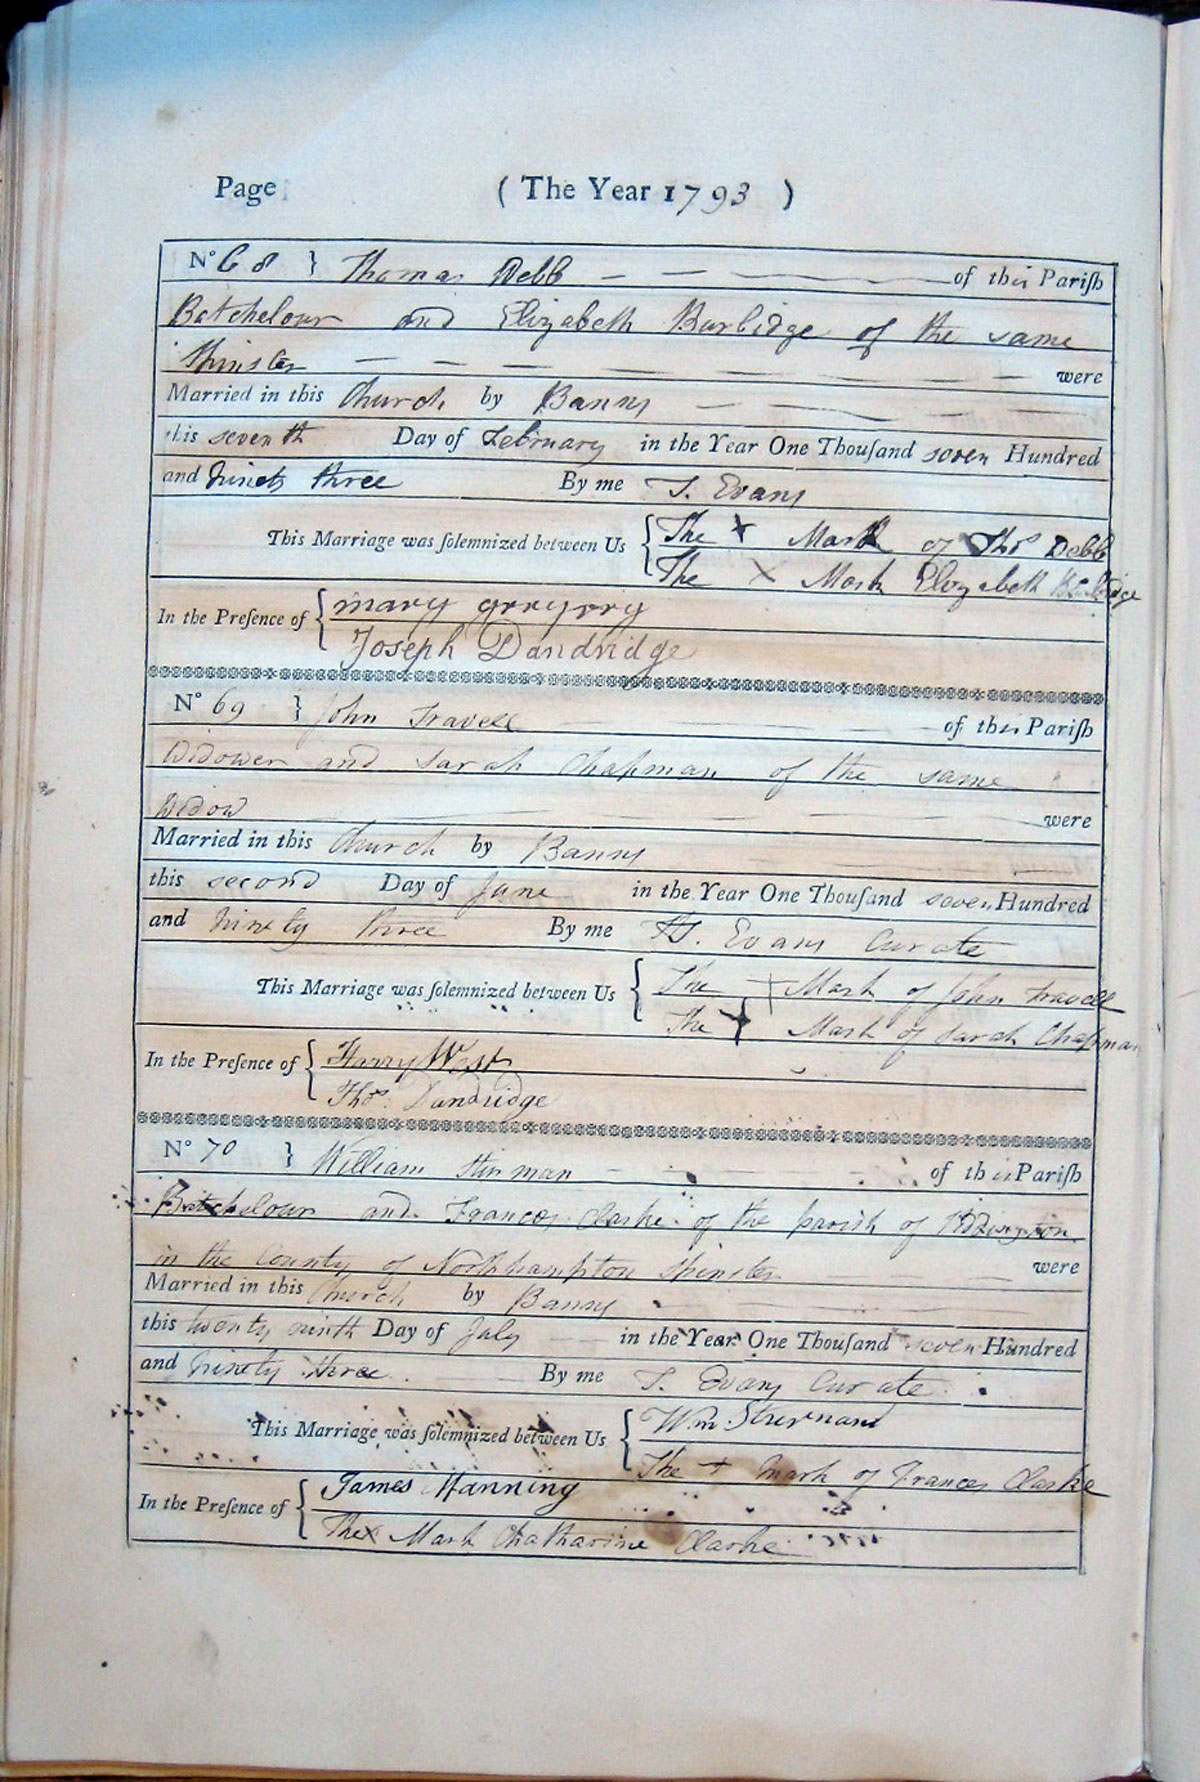 Page (The Year 1793 )
No 68 } Thomas Debb of this Parish
Batchelour and Elizabeth Burbidge of the same
Spinster were
Married in this Church by Banns
this seventh Day of February in the Year One Thousand seven Hundred
and Ninety three By me T. Evans
This Marriage was solemnized between Us { The X Mark of Thos Debb
The X Mark Elizabeth Burbidge
In the Presence of { mary
Joseph Dandridge
No 69 } John Travell of this Parish
Widower and Sarah Chapman of the same
Widow were
Married in this Church by Banns
this second Day of June in the Year One Thousand seven Hundred
and Ninety three By me T. Evans Curate
This Marriage was solemnized between Us { The X Mark of John Travell
The X Mark of Sarah Chapman
In the Presence of { Harry West
Thos. Dandridge
No 70 } William Stirman of this Parish
Batchelour and Frances Clarke of the parish of
in the County of Northhampton Spinster were
Married in this Church by Banns
this twenty ninth Day of July in the Year One Thousand seven Hundred
and Ninety three By me T. Evans Curate
This Marriage was solemnized between Us { Wm.
The + Mark of Frances Clarke
In the Presence of { James Manning
The X Mark Chatharine Clarke